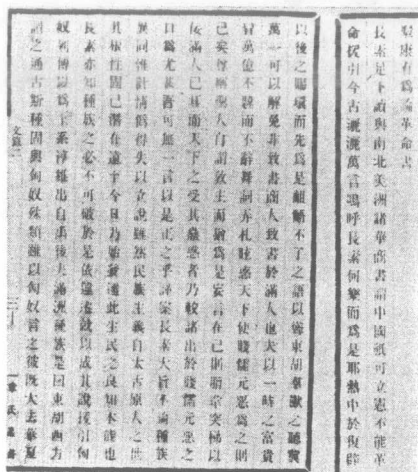 駁康有爲論革命書
長素足下讀與南北美洲諸華商書謂中國祇可立憲不能革
命援引今古灑灑萬言嗚呼長素何樂而爲是耶熱中於復辟
以後之賜環而先爲是齟齬不了之語以聳東胡羣獸之聽冀
萬一可以解免非致書商人致書於滿人也夫以一時之富貴
冒萬億不韙而不辭舞詞弄札眩惑天下使賤儒元惡爲之則
已矣尊稱聖人自謂教主而猶爲是妄言在己則脂韋突梯以
佞滿人已耳而天下之受其蠱惑者乃較諸出於賤儒元惡之
口爲尤甚吾可無一言以是正之乎謹案長素大旨不論種族
異同惟計情僞得失以立說雖然民族主義自太古原人之世
其根性固已潛在遠至今日乃始發達此生民之良知本能也
長素亦知種族之必不可破於是依違遷就以成其說援引匈
奴列傳以爲上系淳維出自禹後夫滿洲種族是曰東胡西方
謂之通古斯種固與匈奴殊類雖以匈奴言之彼既大去華夏
文錄二
章氏叢書